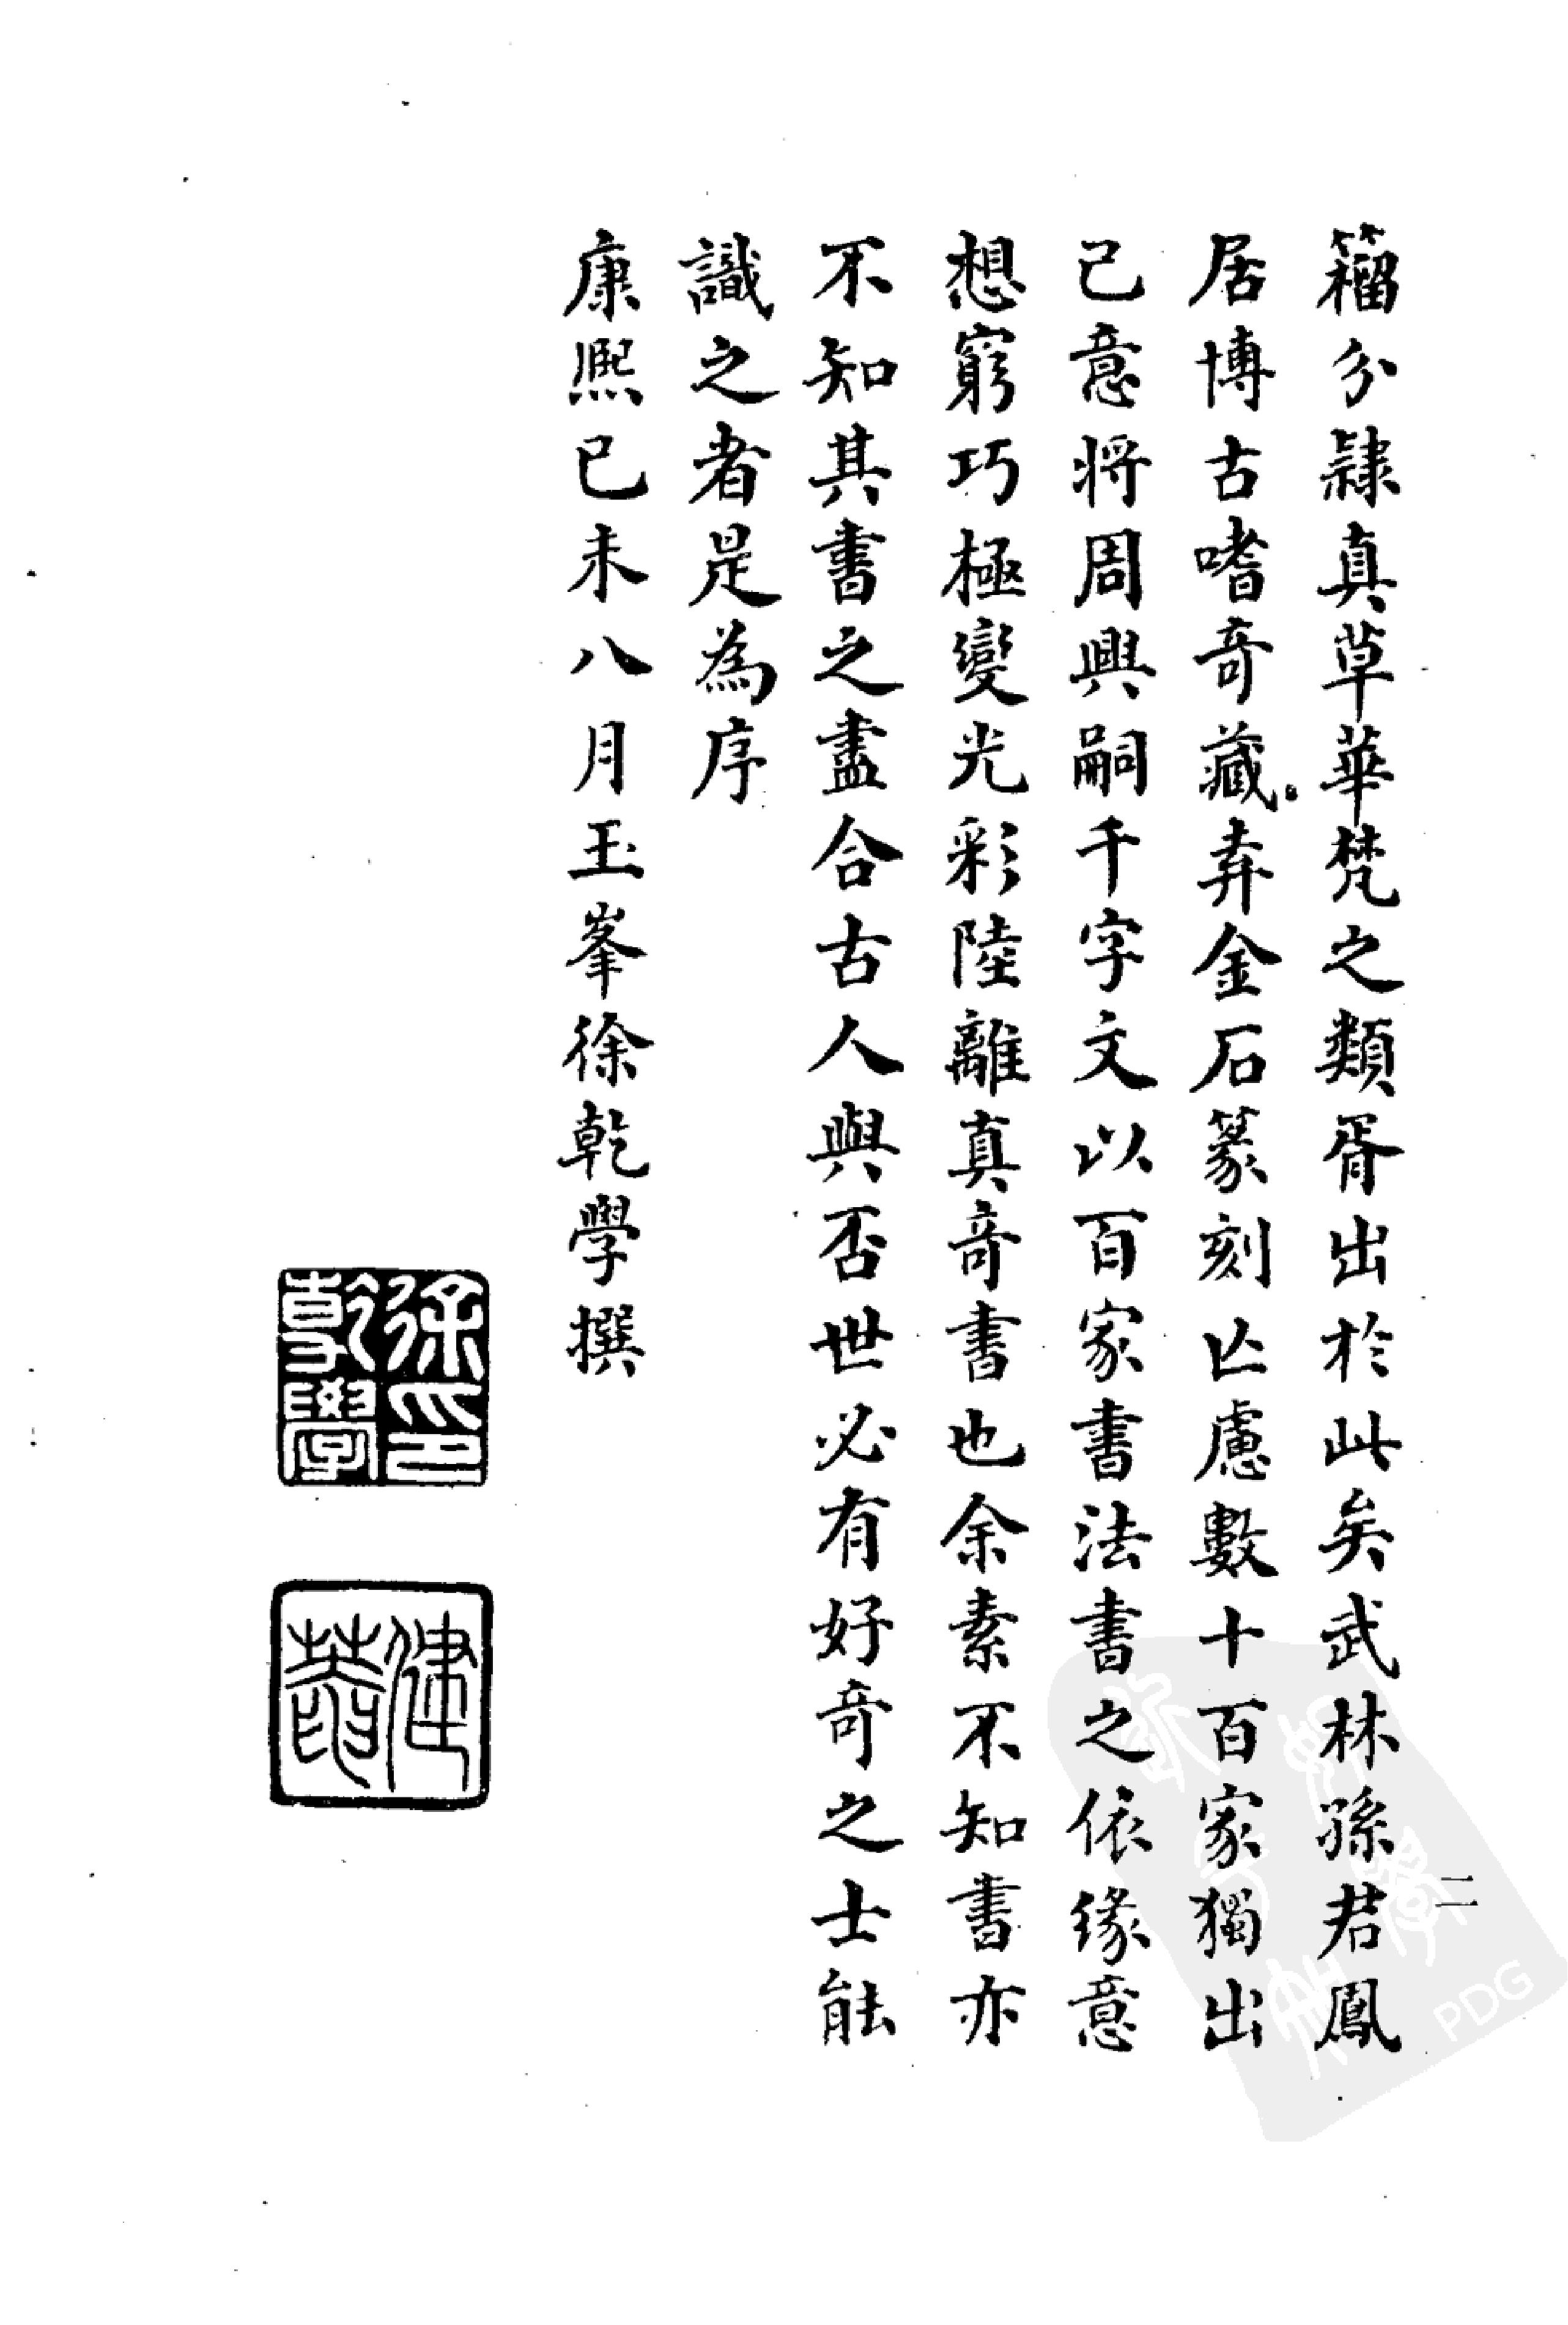 籀分隸真草華梵之類胥出於此矣武林孫君鳳
居博古嗜奇藏弆金石篆刻亡慮數十百家獨出
己意將周興嗣千字文以百家書法書之依緣意
想窮巧極變光彩陸離真奇書也余素不知書亦
不知其書之盡合古人與否世必有好奇之士能
識之者是為序
康熙己未八月玉峯徐乾學撰
徐印乾學
健菴
二
PDG